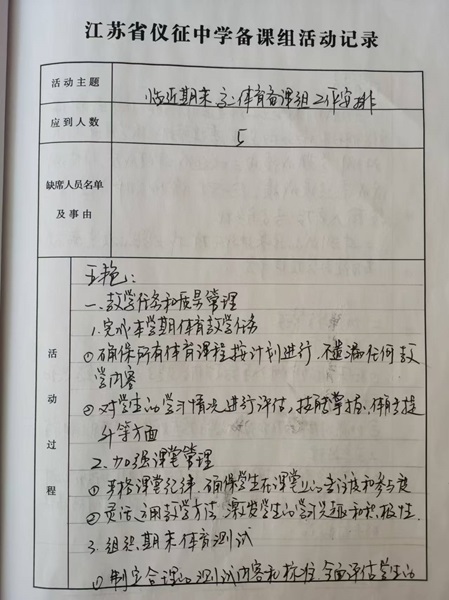 江苏省仪征中学备课组活动记录
活动主题
临近期末高一体育备课组工作安排
应到人数
5
缺席人员名单
及事由
活动过程
王艳：
一、教学任务和质量管理
1.完成本学期体育教学任务
①确保所有体育课程按计划进行，不遗漏任何教
学内容
②对学生的学习情况进行评估，技能掌握、体能提
升等方面
2.加强课堂管理
①严格课堂纪律，确保学生在课堂上的专注度和参与度
②灵活运用教学方法，激发学生的学习兴趣和积极性.
3.组织期末体育测试
①制定合理的测试内容和标准，全面评估学生的